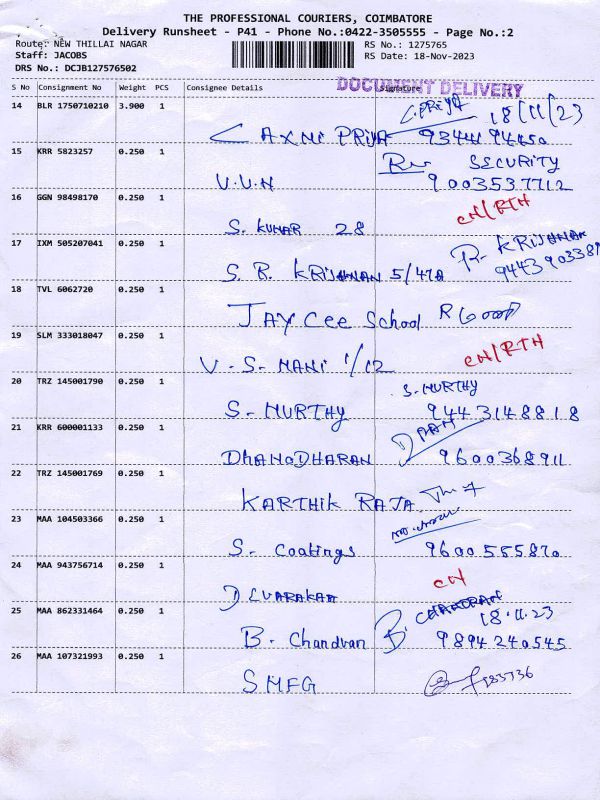 THE PROFESSIONAL COURIERS, COIMBATORE
Delivery Runsheet - P41 - Phone No.:0422-3505555 - Page No.:2
Route: NEW THILLAI NAGAR
RS No.: 1275765
Staff: JACOBS
RS Date: 18-Nov-2023
DRS No.: DCJB127576502
DOCUMENT DELIVERY
S No Consignment No Weight PCS Consignee Details Signature
14 BLR 1750710210 3.900 1
L.PRIYA 18/11/23
LAXMI PRIYA
15 KRR 5823257 0.250 1
SECURITY
V.V.N 9003537712
16 GGN 98498170 0.250 1
CN/RTH
S. KUMAR 28
17 IXM 505207041 0.250 1
R. KRISHNAN
S. R. KRISHNAN 5/47A
18 TVL 6062720 0.250 1
JAYCee School
19 SLM 333018047 0.250 1
CN/RTH
V.S. MANI 1/12
20 TRZ 145001790 0.250 1
S. MURTHY
S. MURTHY 9443148818
21 KRR 600001133 0.250 1
DHANODHARAN 9600368911
22 TRZ 145001769 0.250 1
KARTHIK RAJA
23 MAA 104503366 0.250 1
S. Coatings
24 MAA 943756714 0.250 1
CN
25 MAA 862331464 0.250 1
CHANDRAN
18.11.23
B. Chandran 9894240545
26 MAA 107321993 0.250 1
SMFG